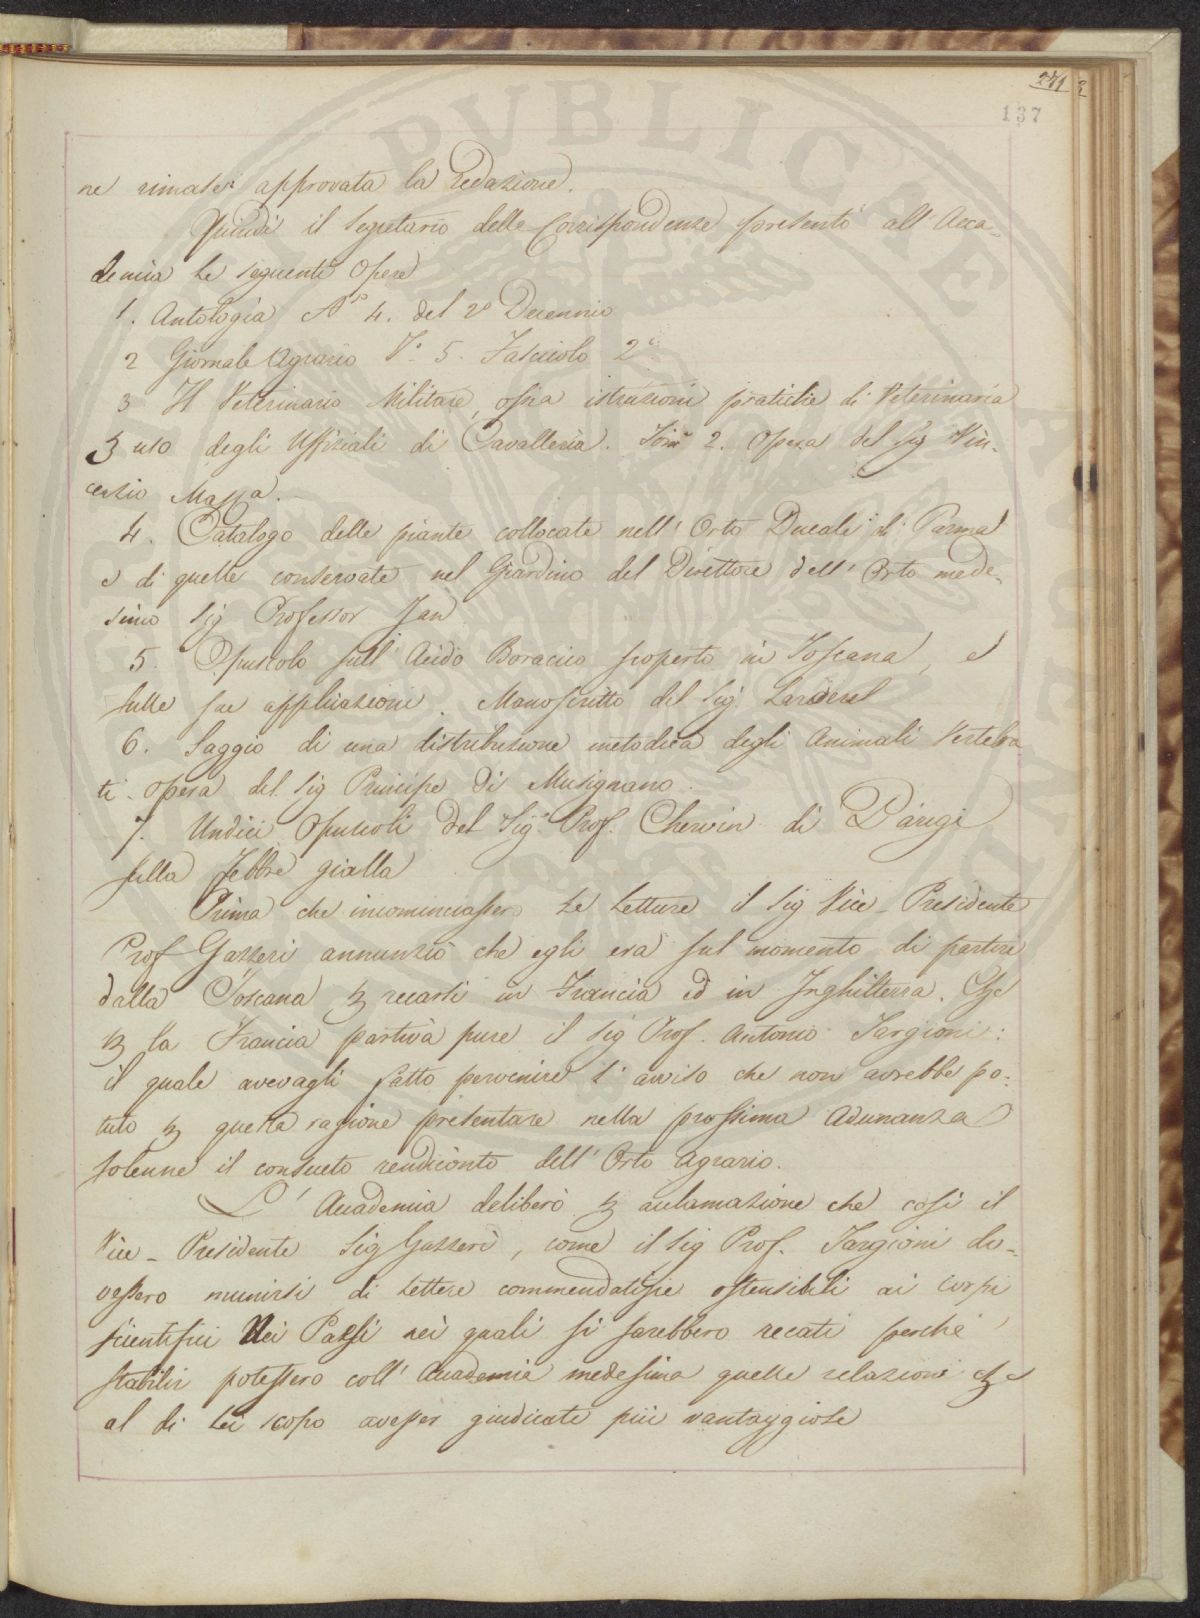 271
137
ne rimase approvata la Redazione.
Quindi il Segretario delle Corrispondenze presentò all' Acca-
demia le seguenti Opere
1. Antologia N.° 4. del 2° Decennio
2 Giornale Agrario V.° 5. Fascicolo 2°
3 Il Veterinario Militare, ossia istruzioni pratiche di Veterinaria
ꝑ uso degli Uffiziali di Cavalleria. Tom 2. Opera del Sig Vin-
cenzio Massa.
4. Catalogo delle piante collocate nell' Orto Ducale di Parma
e di quelle conservate nel Giardino del Direttore dell' Orto mede-
simo Sig Professor Jan
5. Opuscolo sull' Acido Boracico scoperto in Toscana, e
sulle sue applicazioni. Manoscritto del Sig. Larderel
6. Saggio di una distribuzione metodica degli Animali Vertebra
ti. opera del Sig Principe di Musignano.
7. Undici Opuscoli del Sig. Prof. Chervin di Parigi
sulla febbre gialla
Prima che incominciassero le letture il Sig Vice-Presidente
Prof Gazzeri annunziò che egli era sul momento di partire
dalla Toscana ꝑ recarsi in Francia ed in Inghilterra. Che
ꝑ la Francia partiva pure il Sig Prof. Antonio Targioni:
il quale avevagli fatto pervenire l' avviso che non avrebbe po-
tuto ꝑ questa ragione presentare nella prossima Adunanza
solenne il consueto rendiconto dell' Orto Agrario.
L' Accademia deliberò ꝑ acclamazione che così il
Vice-Presidente Sig Gazzeri, come il Sig Prof. Targioni do-
vessero munirsi di lettere commendatizie ostensibili ai Corpi
scientifici dei Paesi nei quali si sarebbero recati perchè
stabilir potessero coll' Accademia medesima quelle relazioni che
al di lei scopo avesser giudicate più vantaggiose